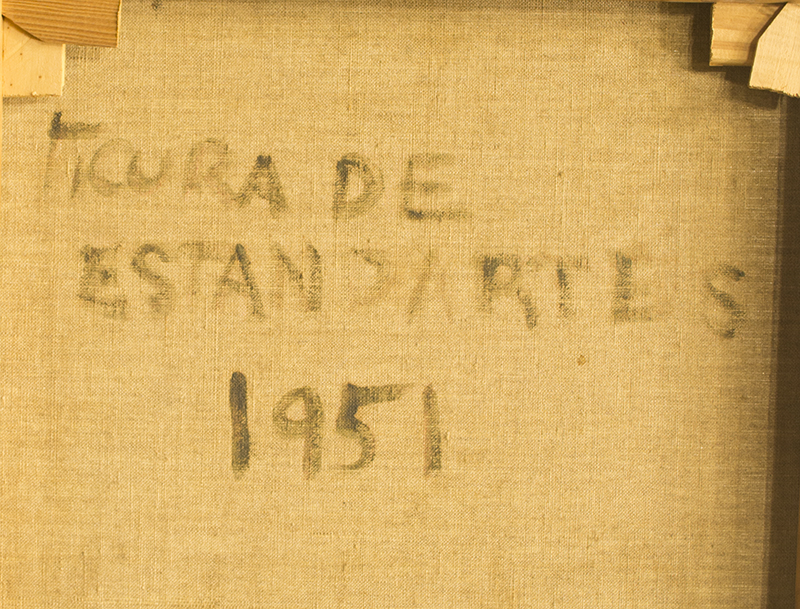 FIGURA DE
ESTANDARTES
1951